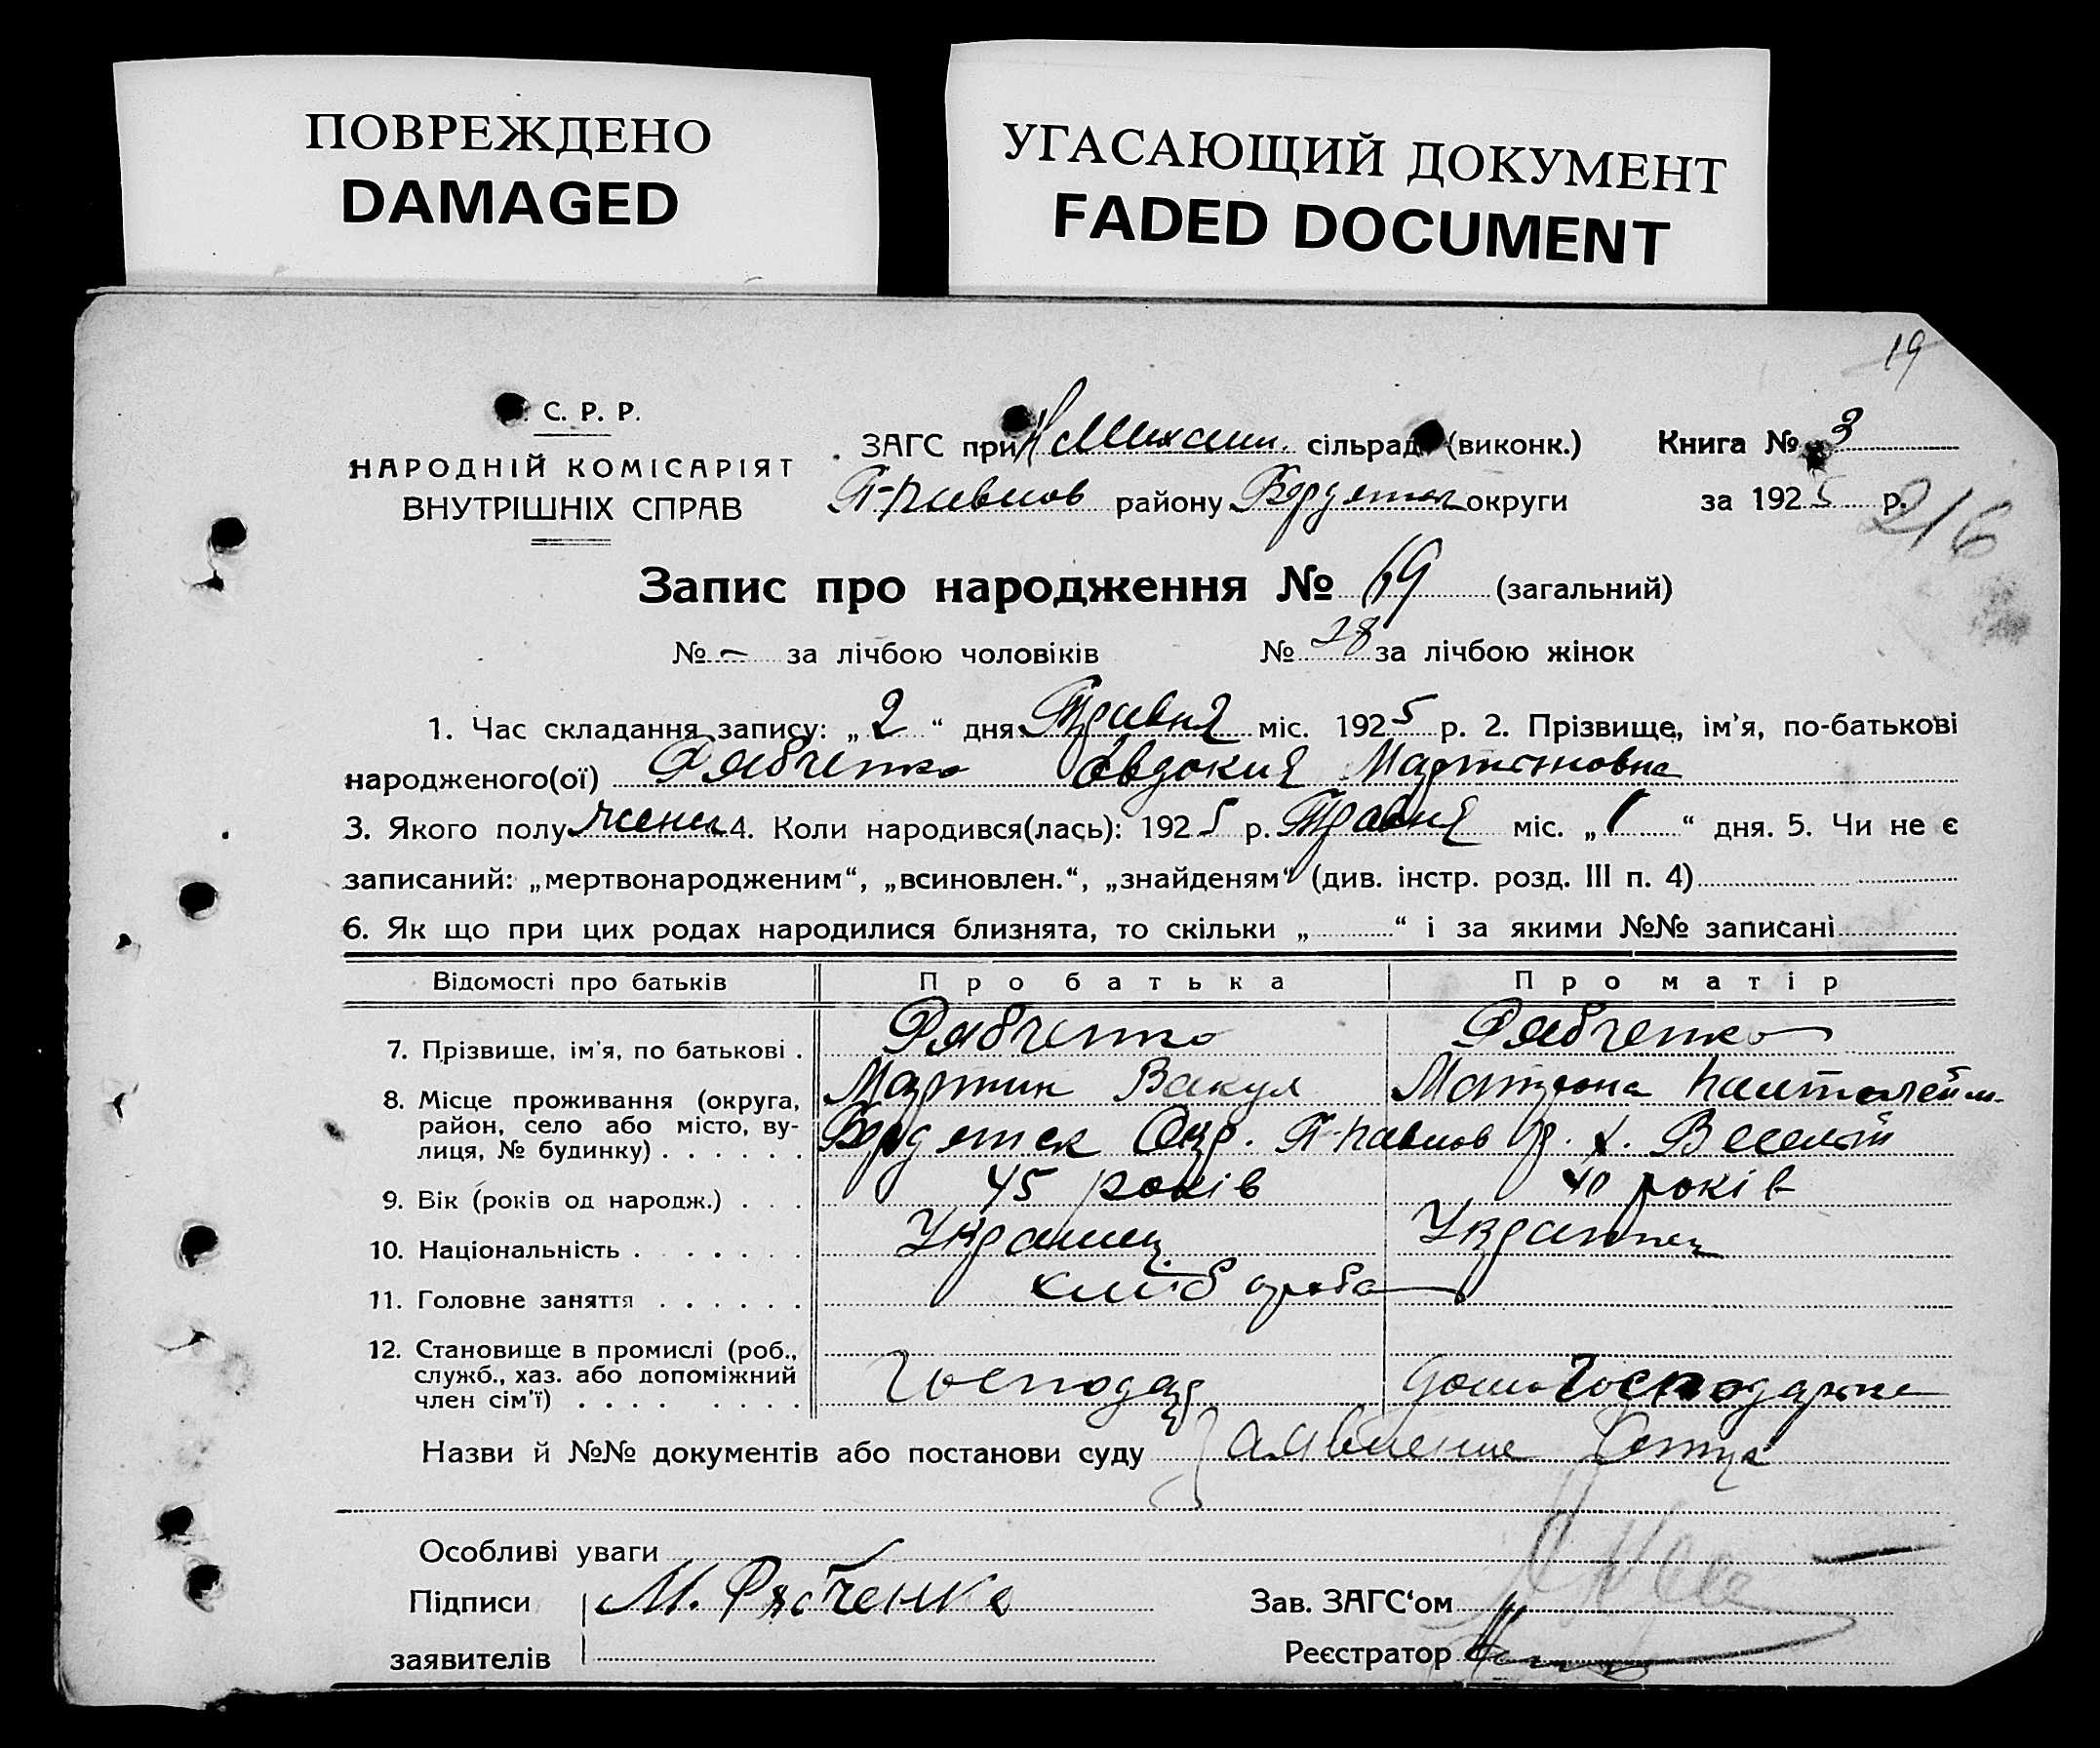 ПОВРЕЖДЕНО
DAMAGED
УГАСАЮЩИЙ ДОКУМЕНТ
FADED DOCUMENT
19
С. Р. Р.
НАРОДНІЙ КОМІСАРІЯТ
ВНУТРІШНІХ СПРАВ
ЗАГС при Н Михайл. сільрад (виконк.) Книга № 3
району округи за 1925 р.
216
Запис про народження № 69 (загальний)
№ - за лічбою чоловіків № 28 за лічбою жінок
1. Час складання запису: „ 2 “ дня Травня міс. 1925 р. 2. Прізвище, ім'я, по-батькові
народженого(ої) Рябченко Евдокия Мартиновна
3. Якого полу 4. Коли народився(лась): 1925 р. Травня міс. „ 1 “ дня. 5. Чи не є
записаний: „мертвонародженим“, „всиновлен.“, „знайденям“ (див. інстр. розд. III п. 4)
6. Як що при цих родах народилися близнята, то скільки „ “ і за якими №№ записані
Відомості про батьків Про батька Про матір
7. Прізвище, ім'я, по батькові . Рябченко Рябченко
Мартин Вакул Матрона Пантелейм.
8. Місце проживання (округа,
район, село або місто, ву-
лиця, № будинку) . . . . . . Бердянск Окр. р. х. Веселий
9. Вік (років од народж.) . . . 45 років 40 років
10. Національність . . . . . . . Украинец Украинец
11. Головне заняття . . . . . . хлібороба
12. Становище в промислі (роб.,
служб., хаз. або допоміжний
член сім'ї) . . . . . . . . Господар домогосподарка
Назви й №№ документів або постанови суду Заявление Отца
Особливі уваги
Підписи М. Рябченко Зав. ЗАГС‘ом
заявителів Реєстратор